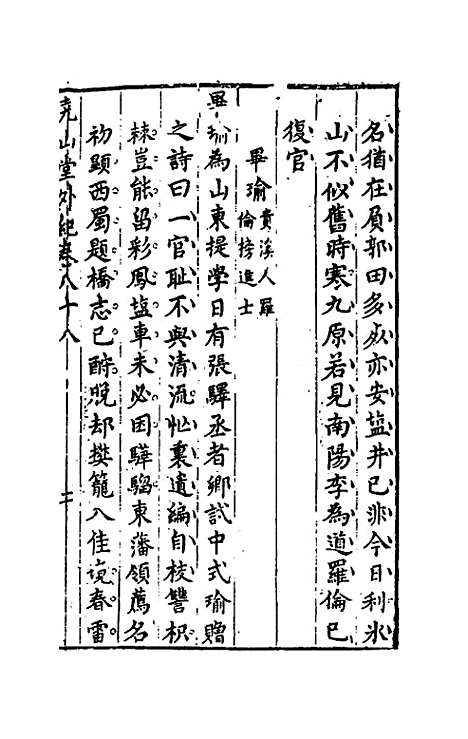 名猶在負郭田多歲亦安盐井已非今日利氷
山不似舊時寒九原若見南陽李為道羅倫已
復官
畢瑜貴溪人羅
倫榜進士
畢瑜為山東提學日有張驛丞者鄉試中式瑜贈
之詩曰一官耻不與清流忙裏遺編自校讐枳
棘豈能留彩鳳盐車未必困驊騮東藩領薦名
初顯西蜀題橋志已酧晚却樊籠入佳境春雷
堯山堂外紀卷八十八 二